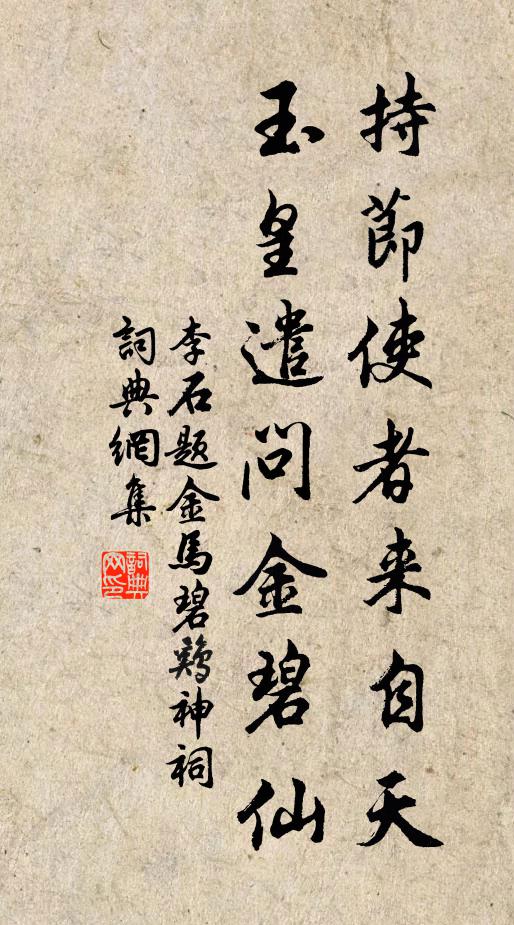 持節使者来自天
玉皇遣问金碧仙
李石題金馬碧鷄神祠
詞典網集
詞典网印